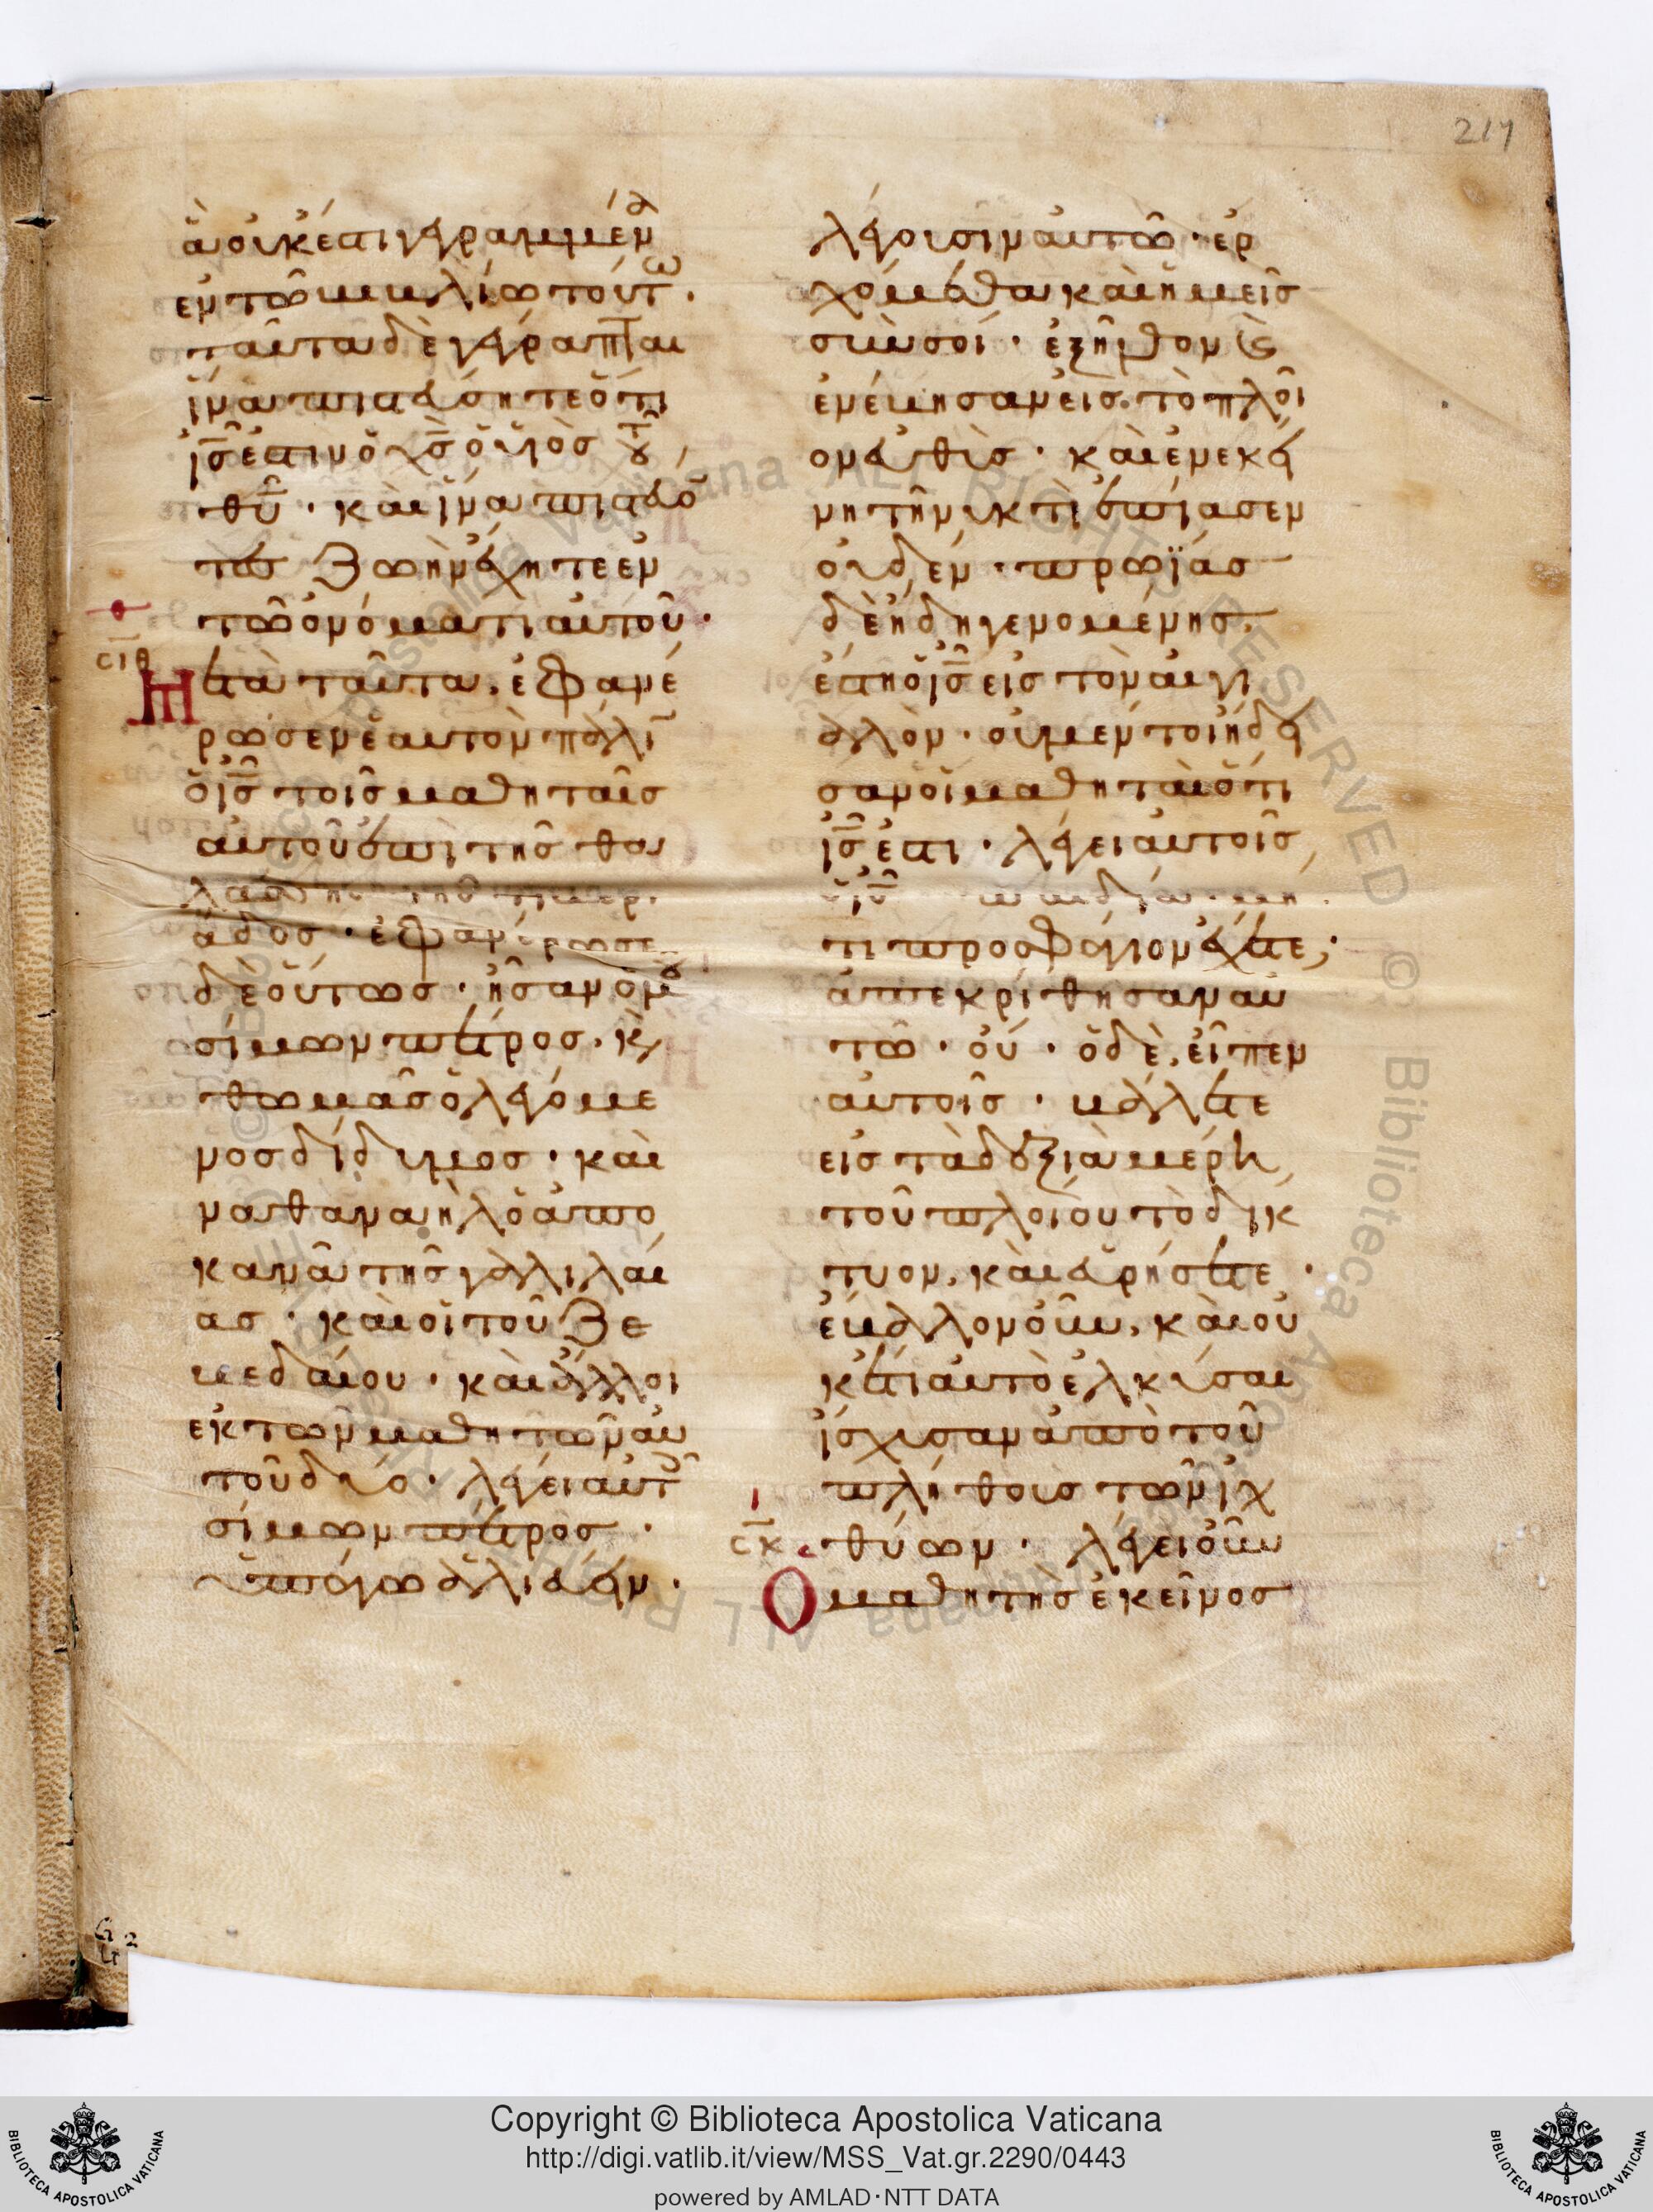 217
ἃ οὐκ ἔστι γεγραμμένα
ἐν τῶ βιβλίω τούτω·
ταῦτα δὲ γέγραπται
ἵνα πιστεύσητε ὅτι
ις̅ ἐστιν ὁ χς̅ ὁ υἱὸς τοῦ
θυ̅· καὶ ἵνα πιστεύον
τες ζωὴν ἔχητε ἐν
τῶ ὀνόματι αὐτοῦ·
σιθ
Μετὰ ταῦτα, ἐφανέ
ρωσεν ἑαυτὸν πάλιν
ὁ ις̅ τοῖς μαθηταῖς
αὐτοῦ ἐπὶ τῆς θα
λάσσης τῆς τιβερι
άδος· ἐφανέρωσε
δὲ οὕτως· ἦσαν ὁμοῦ
σίμων πέτρος, κὶ
θωμᾶς ὁ λεγόμε
νος δίδυμος· καὶ
ναθαναὴλ ὁ ἀπὸ
κανᾶ τῆς γαλιλαί
ας· καὶ οἱ τοῦ ζε
βεδαίου· καὶ ἄλλοι
ἐκ τῶν μαθητῶν αὐ
τοῦ δύο· λέγει αὐτοῖς
σίμων πέτρος·
ὑπάγω ἁλιεύειν·
λέγουσιν αὐτῶ· ἐρ
χόμεθα καὶ ἡμεῖς
σὺν σοί· ἐξῆλθον κὶ
ἐνέβησαν εἰς τὸ πλοῖ
ον εὐθὺς· καὶ ἐν ἐκεί
νη τῆ νυκτὶ ἐπίασεν
οὐδέν· πρωΐας
δὲ ἤδη γενομένης,
ἔστη ὁ ις̅ εἰς τὸν αἰγι
αλόν· οὐ μέντοι ἤδει
σαν οἱ μαθηταὶ ὅτι
ις̅ ἐστι· λέγει αὐτοῖς
ὁ ις̅ παιδία· μή
τι προσφάγιον ἔχετε;
ἀπεκρίθησαν αὐ
τῶ· οὔ· ὁ δὲ, εἶπεν
αὐτοῖς· βάλετε
εἰς τὰ δεξιὰ μέρη
τοῦ πλοίου τὸ δίκ
τυον, καὶ εὑρήσετε·
ἔβαλον οὖν, καὶ οὐ
κέτι αὐτὸ ἑλκύσαι
ἴσχυσαν ἀπὸ τοῦ
πλήθους τῶν ἰχ
σκ
θύων· λέγει οὖν
Ὁ μαθητὴς ἐκεῖνος
Copyright © Biblioteca Apostolica Vaticana
http://digi.vatlib.it/view/MSS_Vat.gr.2290/0443
powered by AMLAD·NTT DATA
BIBLIOTECA APOSTOLICA VATICANA
BIBLIOTECA APOSTOLICA VATICANA